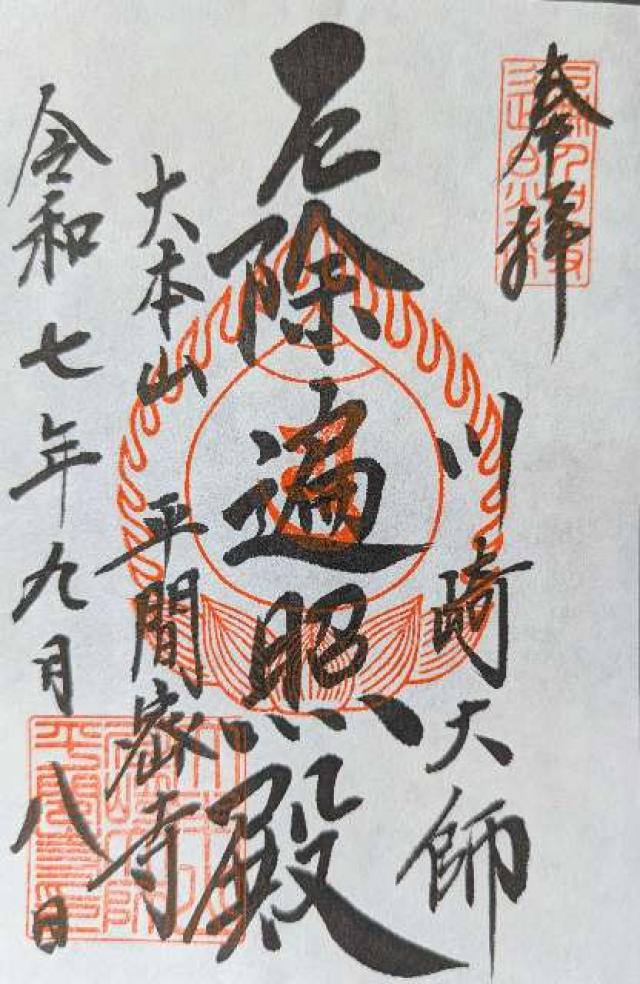 奉拝
川崎大師
厄除遍照殿
大本山 平間密寺
令和七年九月八日